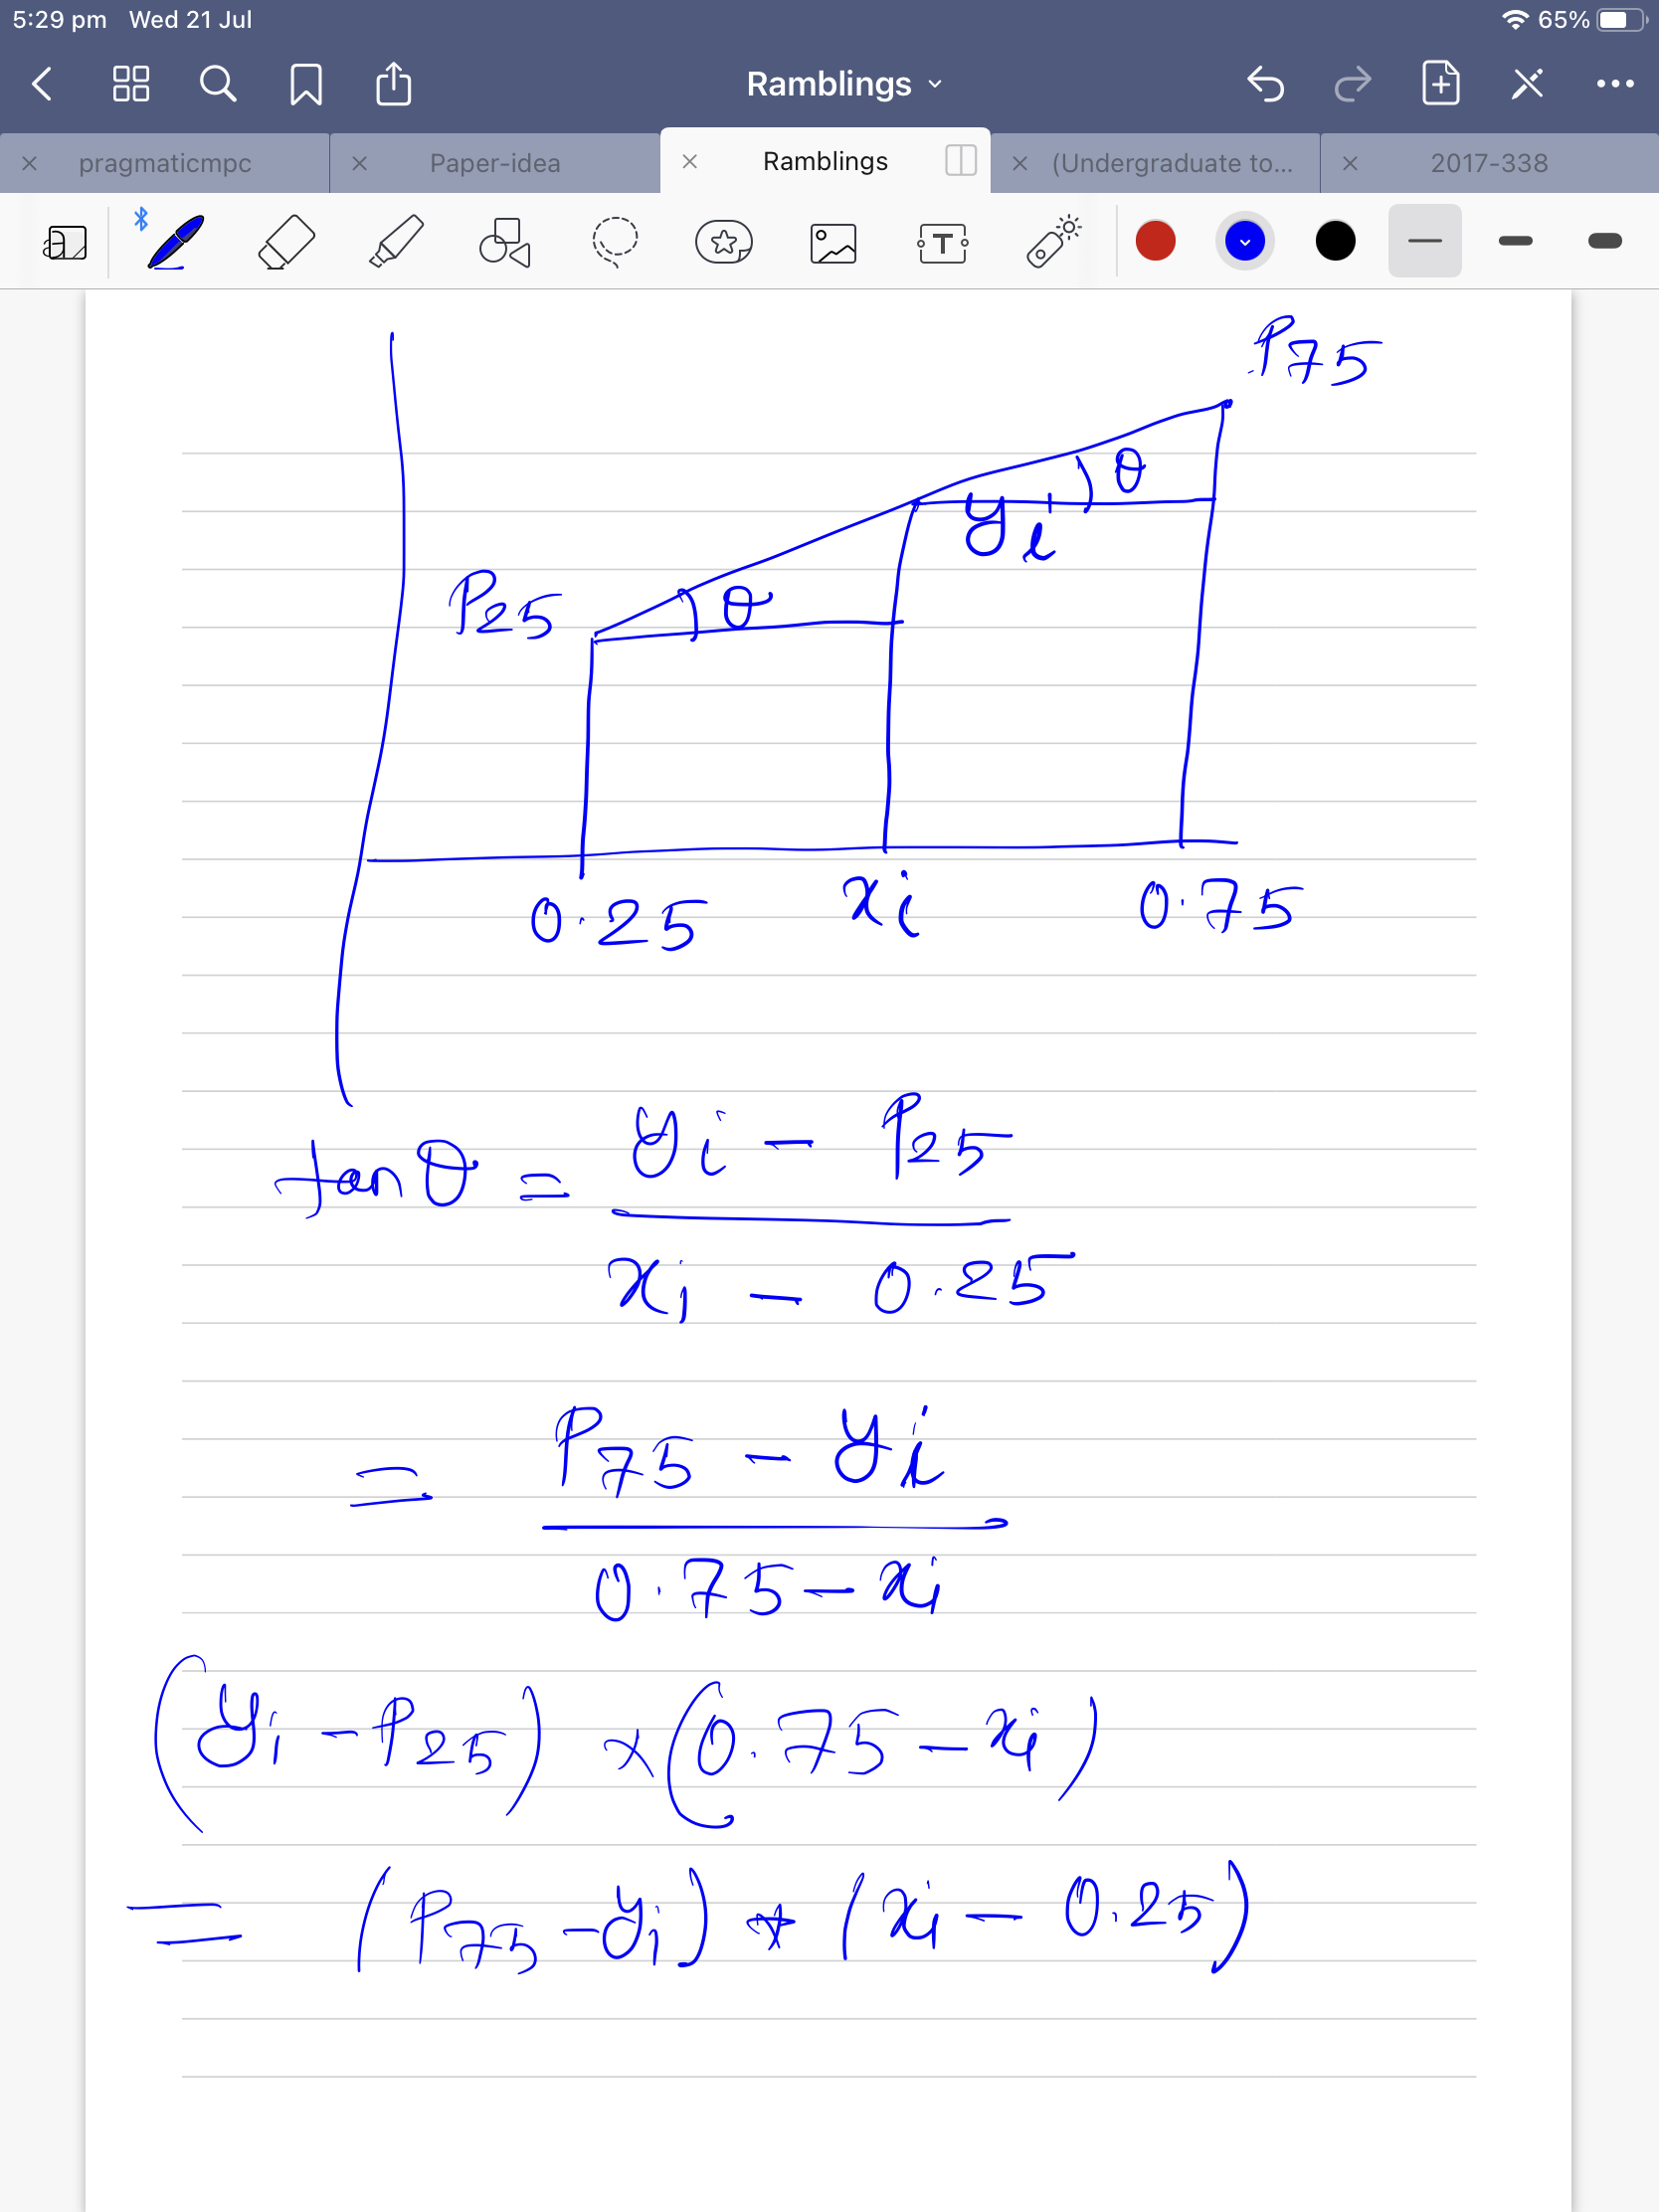 5:29 pm Wed 21 Jul 65%
Ramblings
pragmaticmpc Paper-idea Ramblings (Undergraduate to... 2017-338
P75
θ
yi
P25 θ
0.25 xi 0.75
tan θ = yi - P25
xi - 0.25
= P75 - yi
0.75 - xi
(yi - P25) × (0.75 - xi)
= (P75 - yi) * (xi - 0.25)